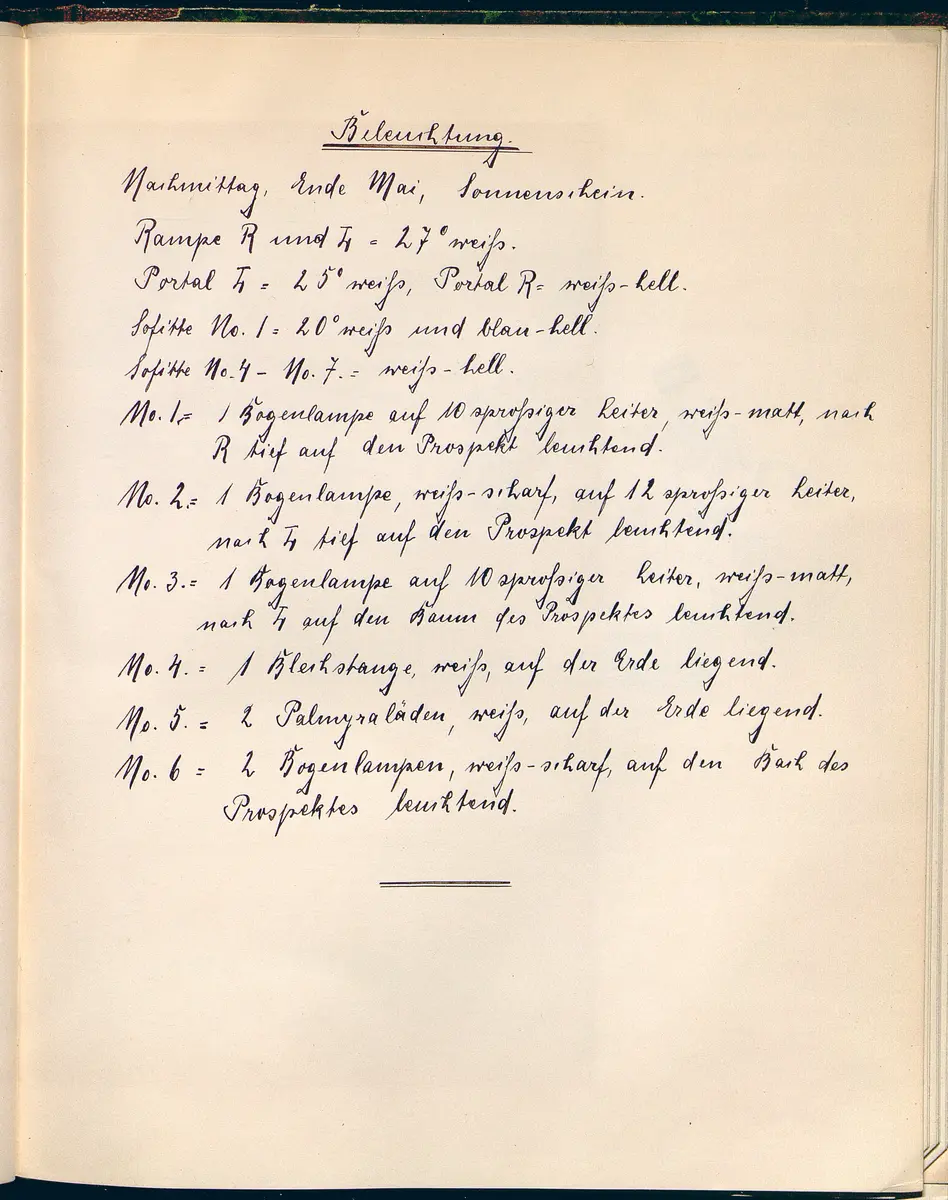 Beleuchtung.
Nachmittag, Ende Mai, Sonnenschein.
Rampe R und L = 27° weiß.
Portal L = 25° weiß, Portal R = weiß-hell.
Sofitte No. 1 = 20° weiß und blau-hell.
Sofitte No. 4 - No. 7. = weiß-hell.
No. 1. = 1 Bogenlampe auf 10 sproßiger Leiter, weiß-matt, nach
R tief auf den Prospekt leuchtend.
No. 2. = 1 Bogenlampe, weiß-scharf, auf 12 sproßiger Leiter,
nach L tief auf den Prospekt leuchtend.
No. 3. = 1 Bogenlampe auf 10 sproßiger Leiter, weiß-matt,
nach L auf den Baum des Prospektes leuchtend.
No. 4. = 1 Blechstange, weiß, auf der Erde liegend.
No. 5. = 2 Palmyraläden, weiß, auf der Erde liegend.
No. 6 = 2 Bogenlampen, weiß-scharf, auf den Bach des
Prospektes leuchtend.